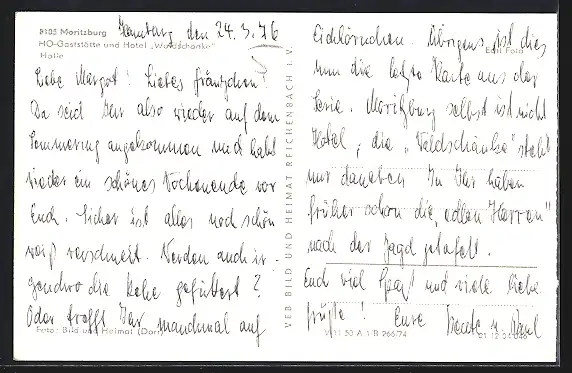 8105 Moritzburg
HO-Gaststätte und Hotel „Waldschänke"
Halle
Samstag den 24.3.76
Liebe Margot! Liebes Fränzchen!
Da seid Ihr also wieder auf dem
Semmering angekommen und habt
wieder ein schönes Wochenende vor
Euch. Sicher ist alles noch schön
weiß verschneit. Werden auch ir-
gendwo die Rehe gefüttert?
Oder trefft Ihr manchmal auf
Foto: Bild und Heimat (Dorf)
VEB BILD UND HEIMAT REICHENBACH I. V.
Eichhörnchen. Übrigens ist dies
nun die letzte Karte aus der
Echt Foto
Serie. Moritzburg selbst ist nicht
Hotel, die „Waldschänke" steht
nur daneben. In Ihr haben
früher schon die „edlen Herren"
nach der Jagd getafelt.
Euch viel Spaß und viele liebe
Grüße! Eure Beate u. Paul
V 11 50 A 1/B 266/74
01 12 04 046